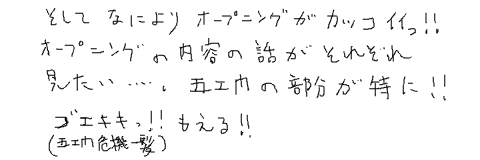 そして なにより オープニングが カッコイイっ!!
オープニングの内容の話がそれぞれ
見たい……。五エ门の部分が特に!!
ゴエキキっ!! もえる!!
(五エ门危機一髪)